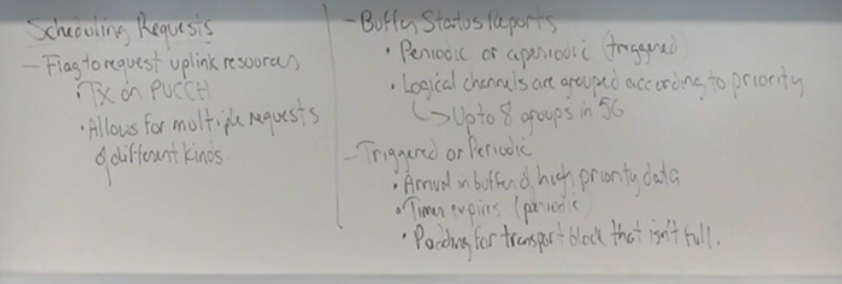 Scheduling Requests
- Flag to request uplink resources
• Tx on PUCCH
• Allows for multiple requests
of different kinds.
- Buffer Status Reports
• Periodic or aperiodic (triggered)
• Logical channels are grouped according to priority
↳ Up to 8 groups in 5G
- Triggered or Periodic
• Arrival in buffer of high priority data
• Timer expires (periodic)
• Padding for transport block that isn't full.